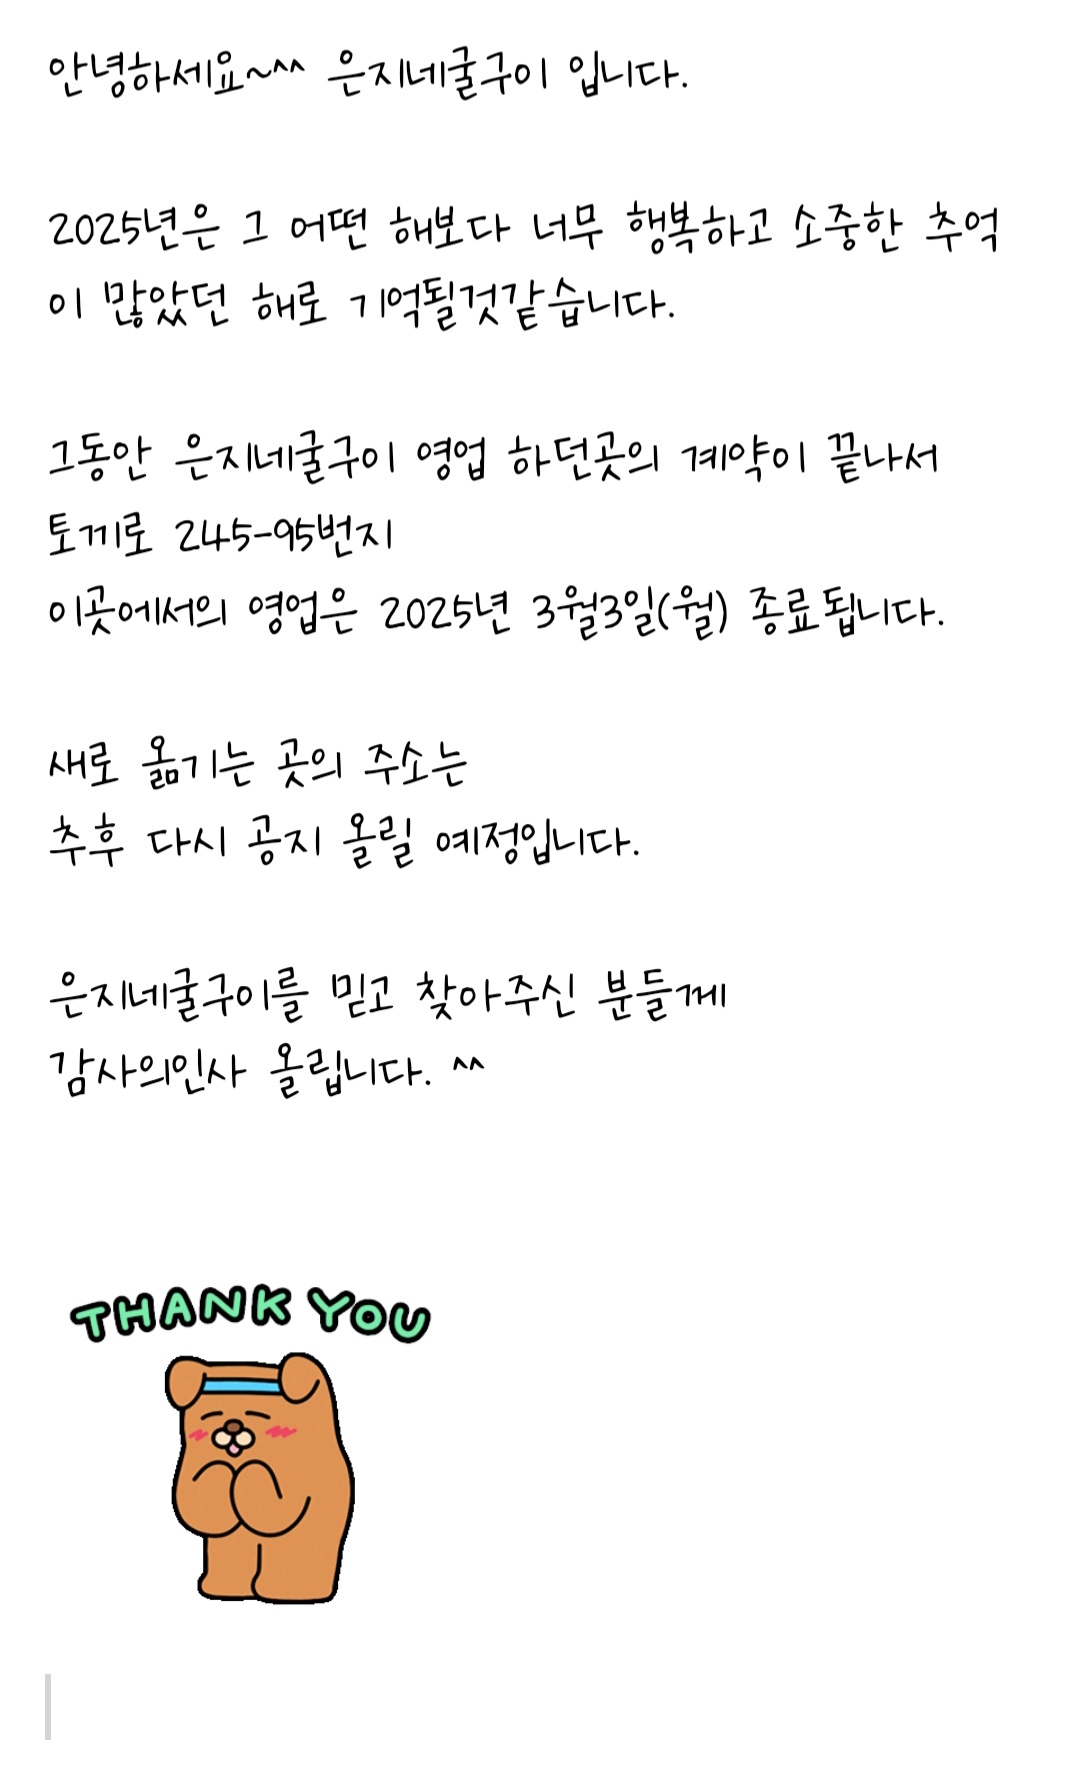 안녕하세요~^^ 은지네굴구이 입니다.
2025년은 그 어떤 해보다 너무 행복하고 소중한 추억
이 많았던 해로 기억될것같습니다.
그동안 은지네굴구이 영업 하던곳의 계약이 끝나서
토끼로 245-95번지
이곳에서의 영업은 2025년 3월3일(월) 종료됩니다.
새로 옮기는 곳의 주소는
추후 다시 공지 올릴 예정입니다.
은지네굴구이를 믿고 찾아주신 분들께
감사의인사 올립니다. ^^
THANK YOU